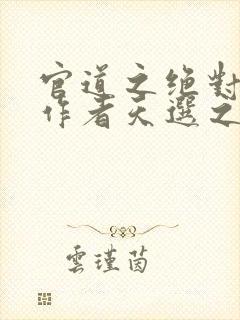 官道之绝對
作者天選之
雲瑾茵